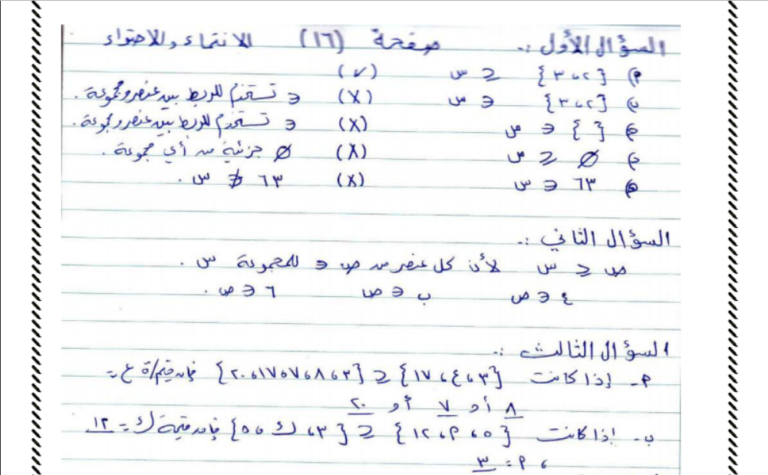 السؤال الأول :. صفحة (١٦) الانتماء والاحتواء
م) {٢،٣} ⊆ س (✓)
ب) {٢،٣} ∋ س (X) ∋ تستخدم للربط بين عنصر ومجموعة .
ج) { } ∋ س (X) ∋ تستخدم للربط بين عنصر ومجموعة .
م) ∅ ⊆ س (X) ∅ جزئية من أي مجموعة .
٦٣ ∋ س (X) ٦٣ ∌ س .
السؤال الثاني :.
ص ⊆ س لأن كل عنصر من ص ∋ للمجموعة س .
٤ ∋ ص ب ∋ ص ٦ ∋ ص .
السؤال الثالث :.
م- إذا كانت {٣،٤،١٧} ⊆ {٣،٨،٧،٥،١٧،٢٠} فإن قيم/ة ع =
٨ أو ٧ أو ٢٠
ب- إذا كانت {٥،م،١٢} ⊆ {٣،ك،٥} فإن قيمة ك = ١٢
، م = ٣